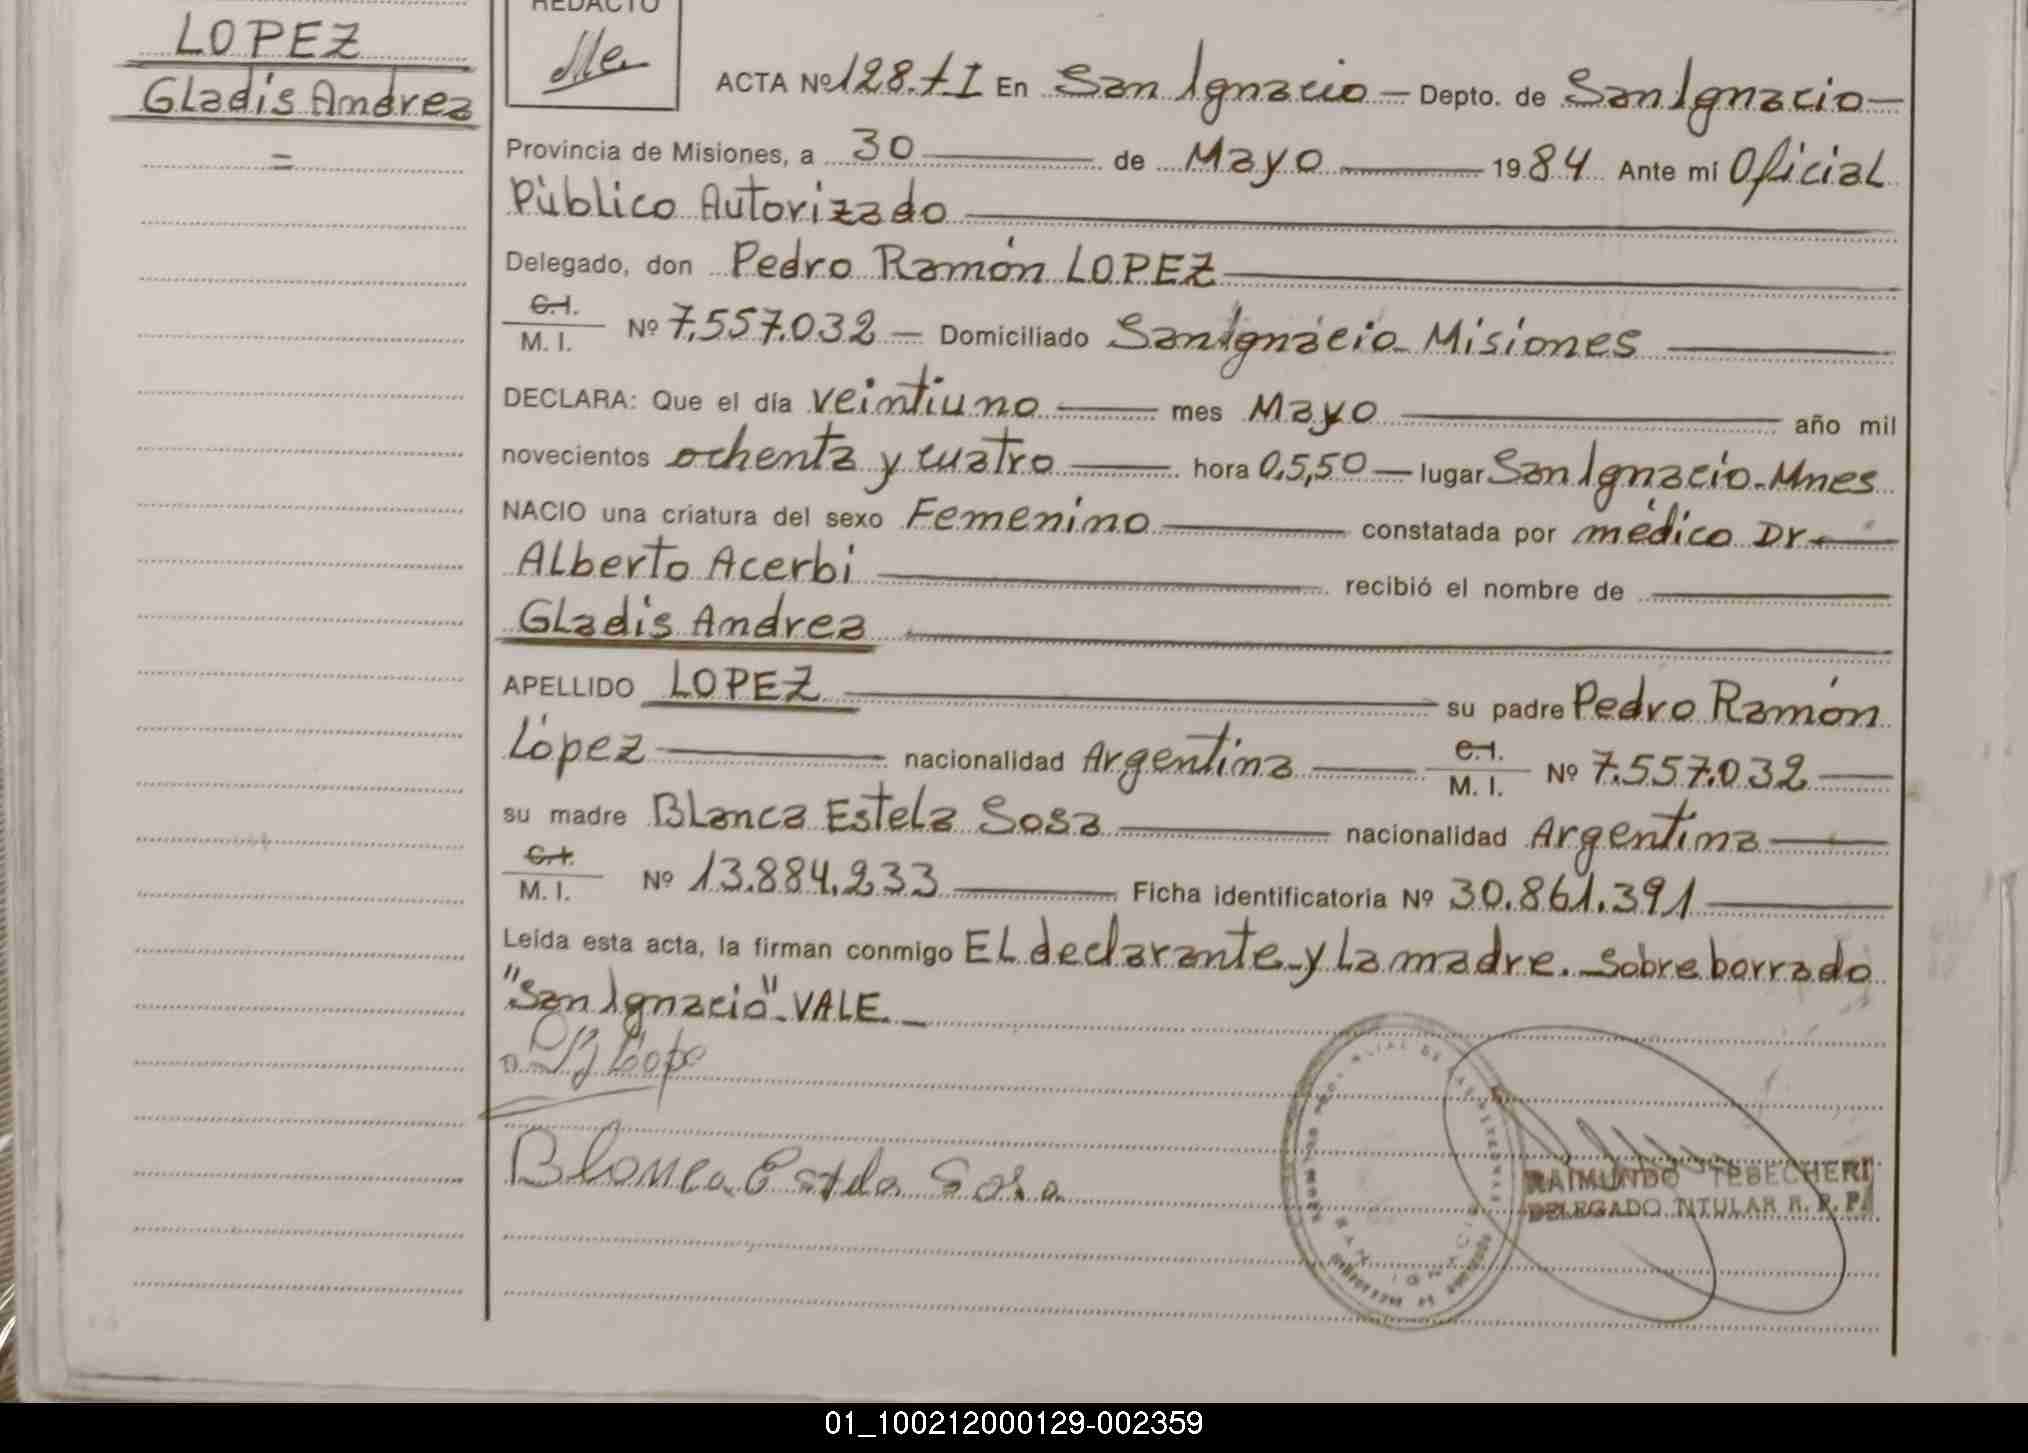 LOPEZ
Gladis Andrea
=
REDACTO
ACTA Nº 128. tI En San Ignacio - Depto. de San Ignacio -
Provincia de Misiones, a 30 de Mayo 1984 Ante mi Oficial
Público Autorizado
Delegado, don Pedro Ramón LOPEZ
C.I.
M. I. Nº 7.557.032 - Domiciliado San Ignacio - Misiones
DECLARA: Que el día veintiuno mes Mayo año mil
novecientos ochenta y cuatro hora 0,5,50 - lugar San Ignacio - Mnes
NACIO una criatura del sexo Femenino constatada por médico Dr -
Alberto Acerbi recibió el nombre de
Gladis Andrea
APELLIDO LOPEZ su padre Pedro Ramón
López nacionalidad Argentina C.I. M. I. Nº 7.557.032
su madre Blanca Estela Sosa nacionalidad Argentina
C.I.
M. I. Nº 13.884.233 Ficha identificatoria Nº 30.861.391
Leída esta acta, la firman conmigo El declarante - y la madre. - Sobreborrado
"San Ignacio" - VALE. -
Blanca Estela Sosa
RAIMUNDO TEBECHERI
DELEGADO TITULAR R. P. P.
SAN IGNACIO
01_100212000129-002359